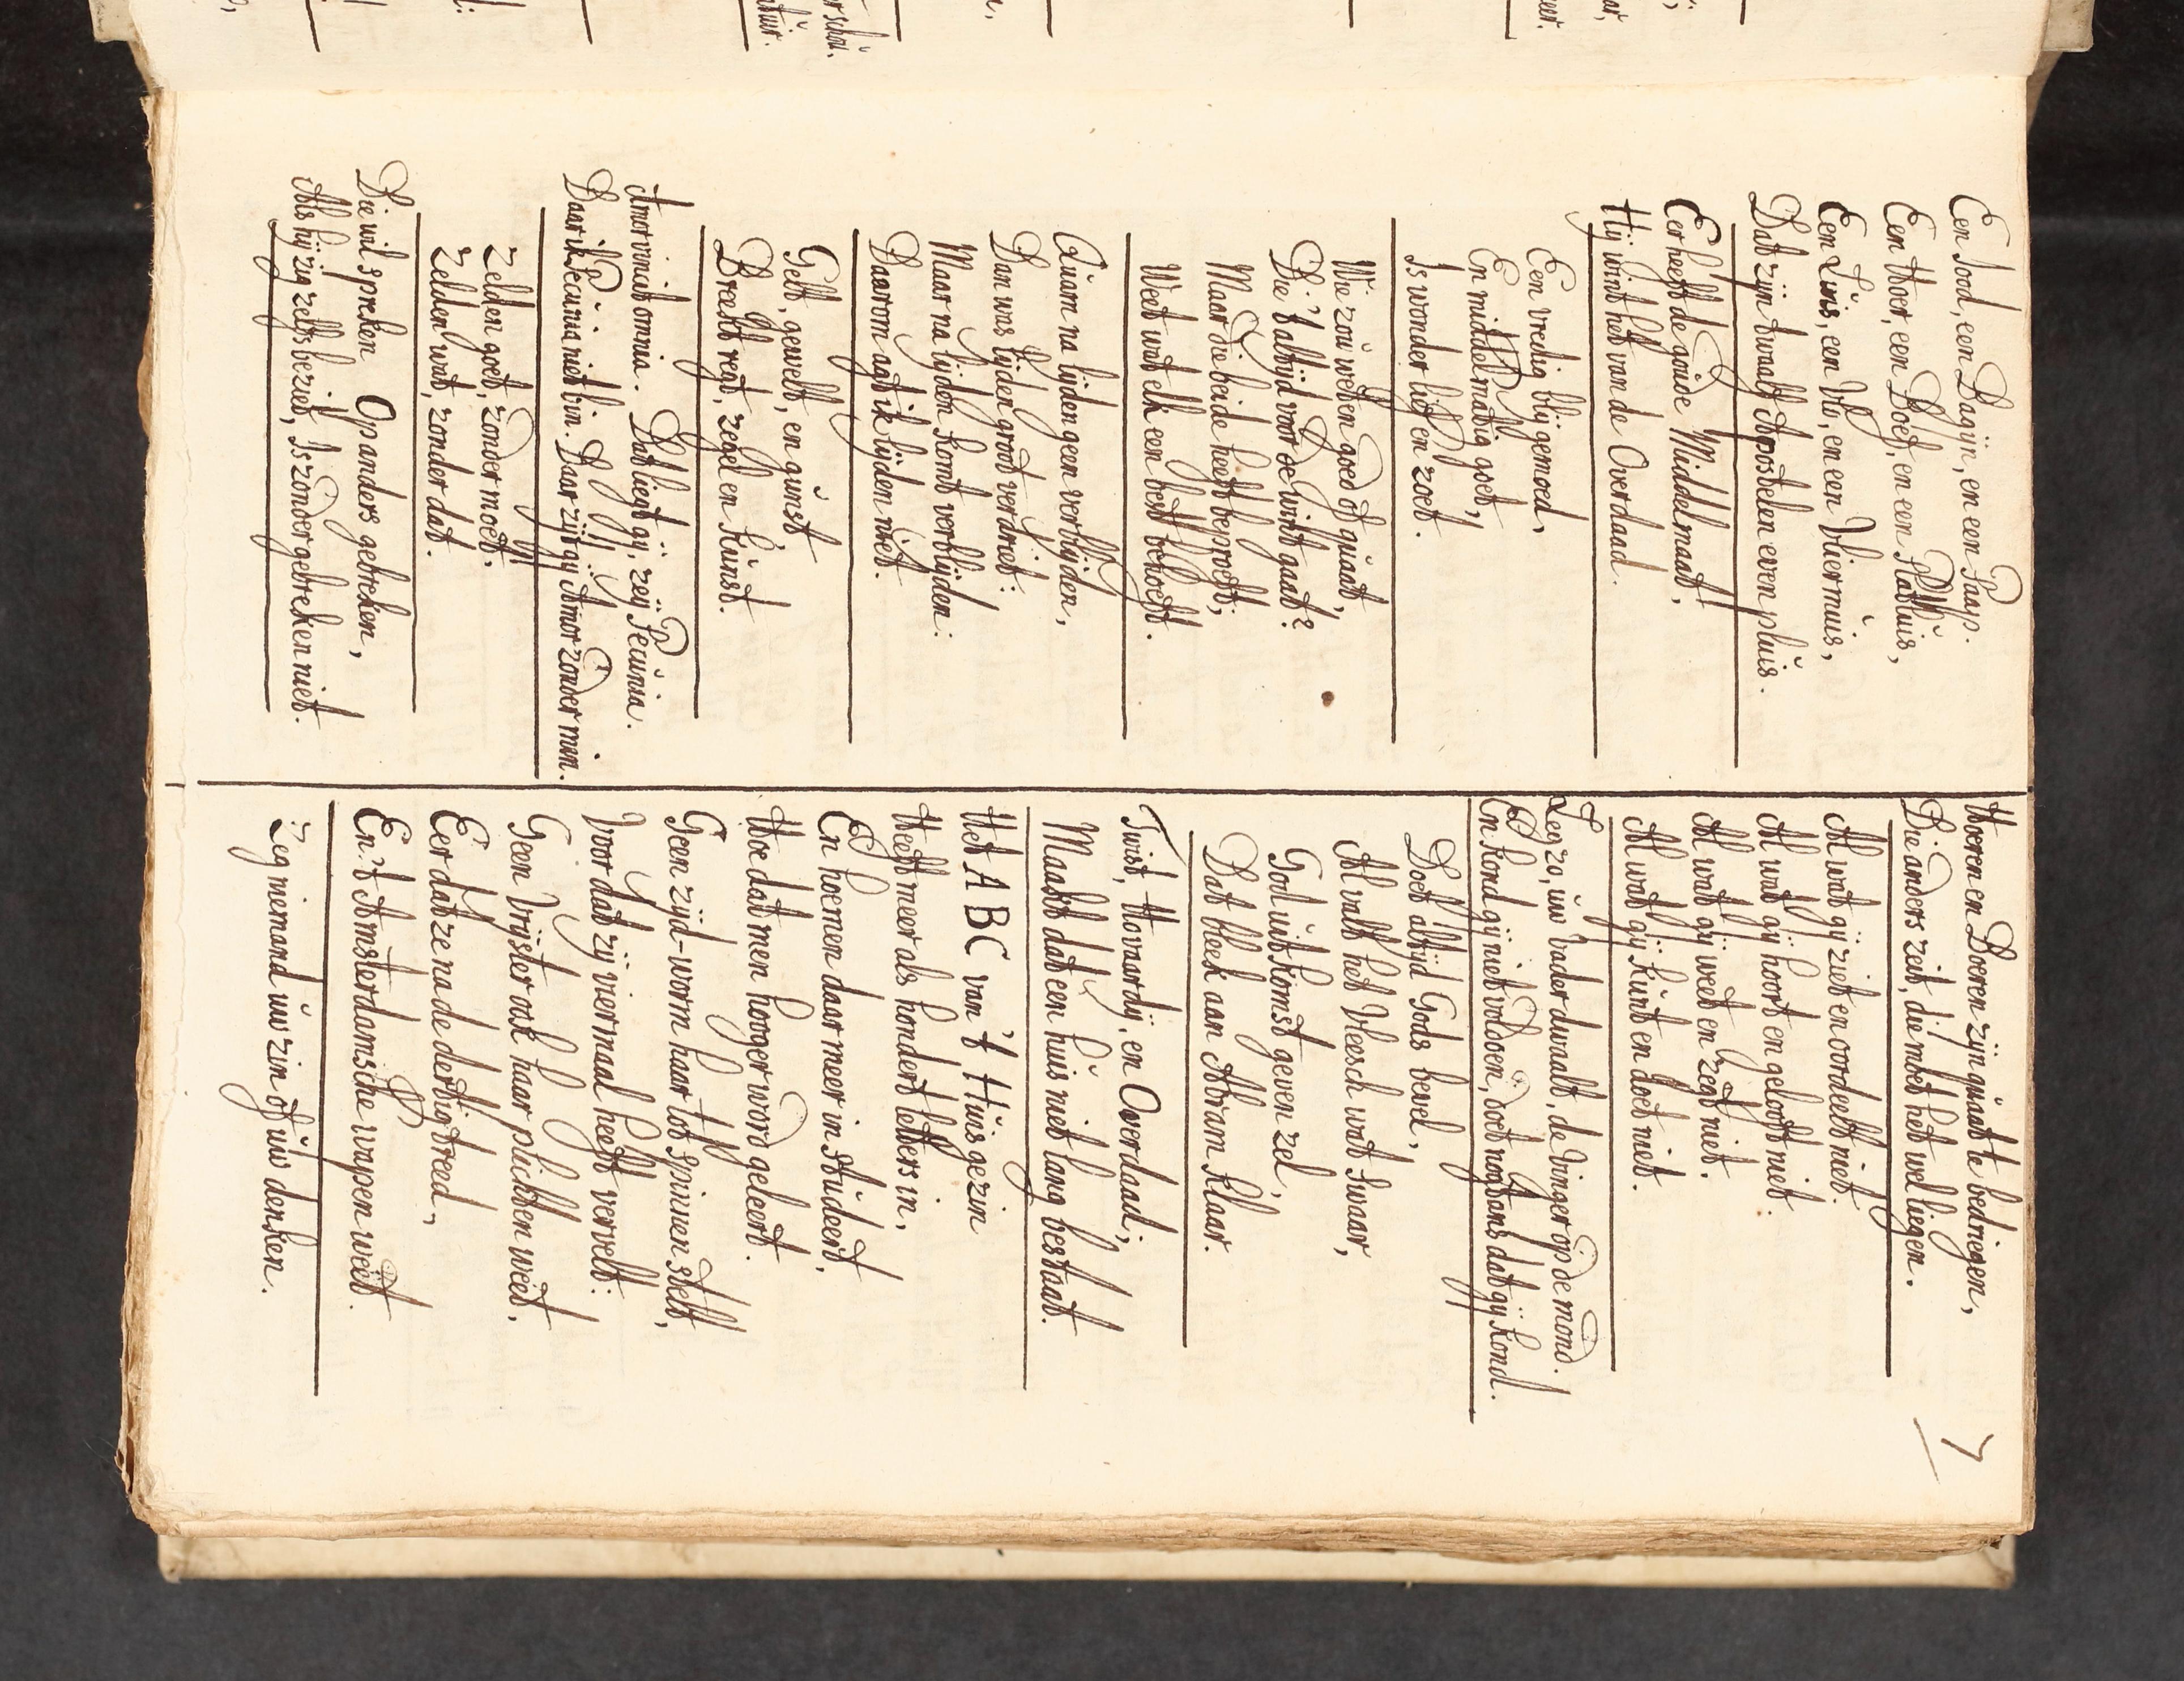 Een Jood, een Bagijn, en een Paap.
Een Hoer, een Boef, en een Platluis,
Een Luis, een Vlo, en een Vliermuis,
Dat zijn twaalf Apostelen even pluis.
Eer heeft de goude Middelmaat,
Hij wint het van de Overdaad.
Een vredig blij gemoed,
En middelmatig goet,
Is wonder lief en zoet.
Wie zou weten goed of quaat,
Die 't altijd voor de wint gaat?
Maar die beide heeft beproeft;
Weet wat elk een best behoeft.
Quam na lijden geen verblijden,
Dan was lijden groot verdriet:
Maar na lijden komt verblijden:
Daarom agt ik lijden niet.
Gelt, gewelt, en gunst
Breekt regt, zegel en kunst.
Amor vincit omnia. Dat liegt gij, zeij Pecunia.
Daar ik Pecunia niet bin. Daar zijt gij Amor zonder min.
Zelden goet, zonder moet.
Zelden wat, zonder dat.
Die wil spreken Op anders gebreken,
Als hij zig zelfs beziet, Is zonder gebreken niet.
7
Hoeren en Boeren zijn quaat te bedriegen,
Die anders zeit, die moet het wel liegen.
Al wat gij ziet en oordeelt niet.
Al wat gij hoort en gelooft niet.
Al wat gij weet en zegt niet.
Al wat gij kunt en doet niet.
Leg zo, uw vader dwaalt, de vinger op de mond.
En kond gij niet voldoen, doet nogtans dat gij kond.
Doet altijd Gods bevel,
Al valt het Vleesch wat swaar,
God uitkomst geven zel,
Dat bleek aan Abram klaar.
Twist, Hovaardij, en Overdaad,
Maakt dat een huis niet lang bestaat.
Het ABC van 't Huisgezin
Heeft meer als hondert letters in,
En hoe men daar meer in studeert,
Hoe dat men hooger word geleert.
Geen zijd-worm haar tot spinnen stelt,
Voor dat zij viermaal heeft vervelt:
Geen Vrijster ook haar plichten weet,
Eer dat ze na de dertig treed,
En 't Amsterdamsche wapen weet.
Zeg niemand uw zin of uw denken.